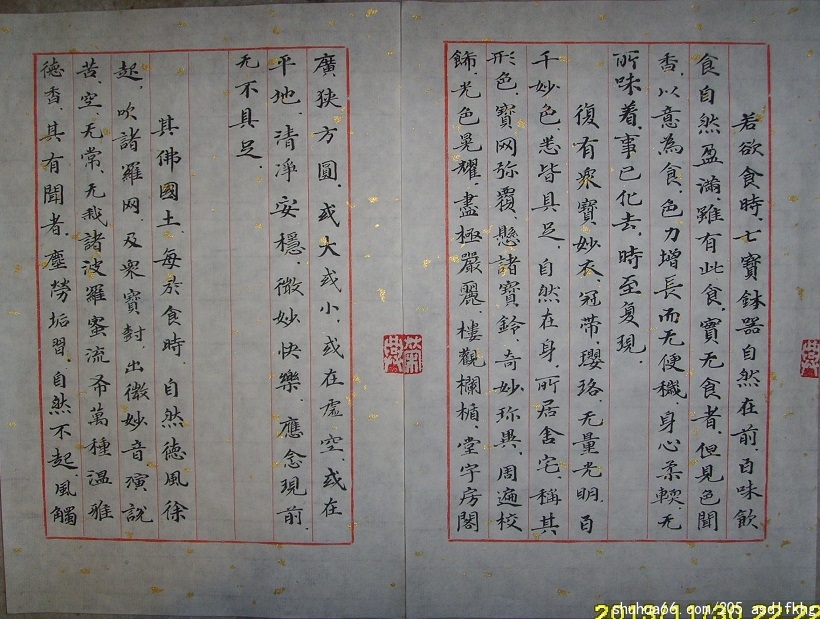 若欲食時.七寶鉢器自然在前.百味飲
食自然盈滿.雖有此食.實无食者.但見色聞
香.以意為食.色力增長而无便穢.身心柔輭.无
所味着.事已化去.時至复現.
復有衆寶妙衣.冠帶.瓔珞.无量光明.百
千妙色悉皆具足.自然在身.所居舍宅.稱其
形色.寶网弥覆.懸諸寶鈴.奇妙珎異.周遍校
飾.光色晃耀.盡極嚴麗.樓觀欄楯.堂宇房閣
廣狭方圓.或大或小.或在虚空.或在
平地.清淨安穩.微妙快樂.應念現前.
无不具足.
其佛國土.每於食時.自然德風徐
起.吹諸羅网.及衆寶樹.出微妙音.演說
苦.空.无常.无我諸波羅蜜.流布萬種溫雅
德香.其有聞者.塵勞垢習.自然不起.風觸
2013/11/30 22:22
shuhua66.com/205 asdlfkhg